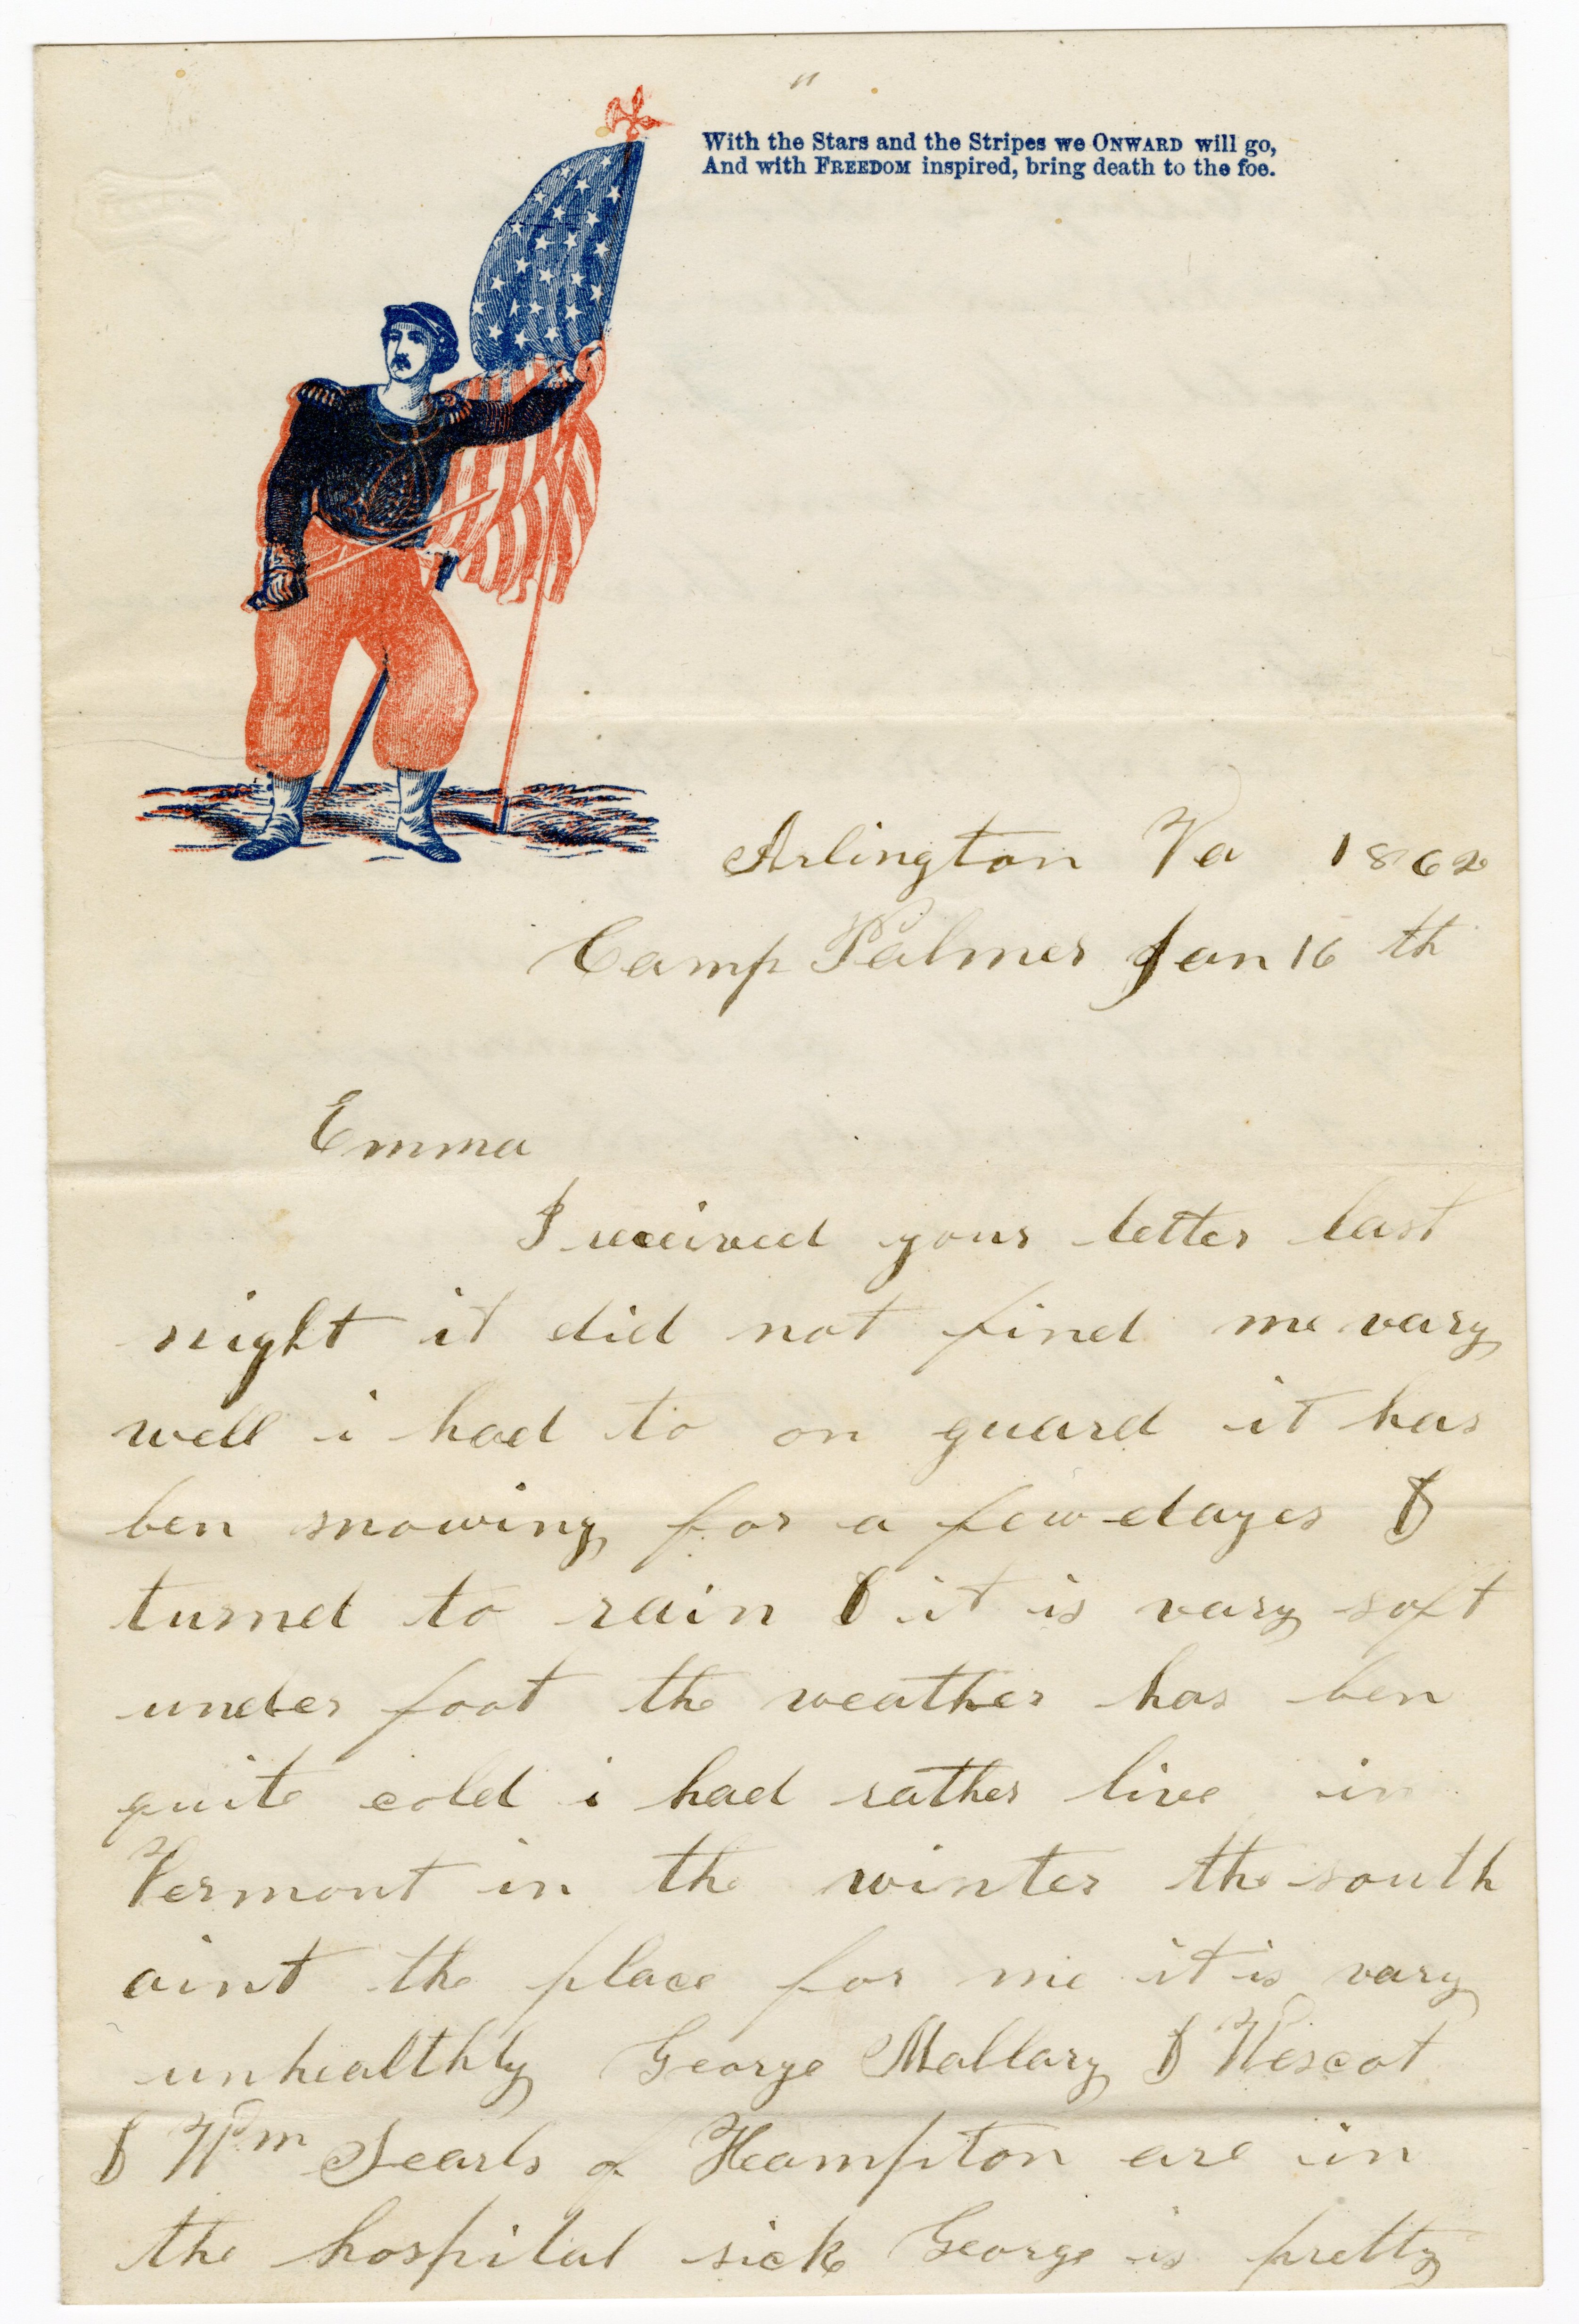 With the Stars and the Stripes we ONWARD will go,
And with FREEDOM inspired, bring death to the foe.
Arlington Va 1862
Camp Palmer Jan 16 th
Emma
I received your letter last
night it did not find me vary
well i had to on guard it has
ben snowing for a few dayes &
turnd to rain & it is vary soft
under foot the weather has ben
quite cold i had rather live in
Vermont in the winter the south
aint the place for me it is vary
unhealthly George Mallary & Wescot
& Wm Searls of Hampton are in
the hospital sick George is pretty